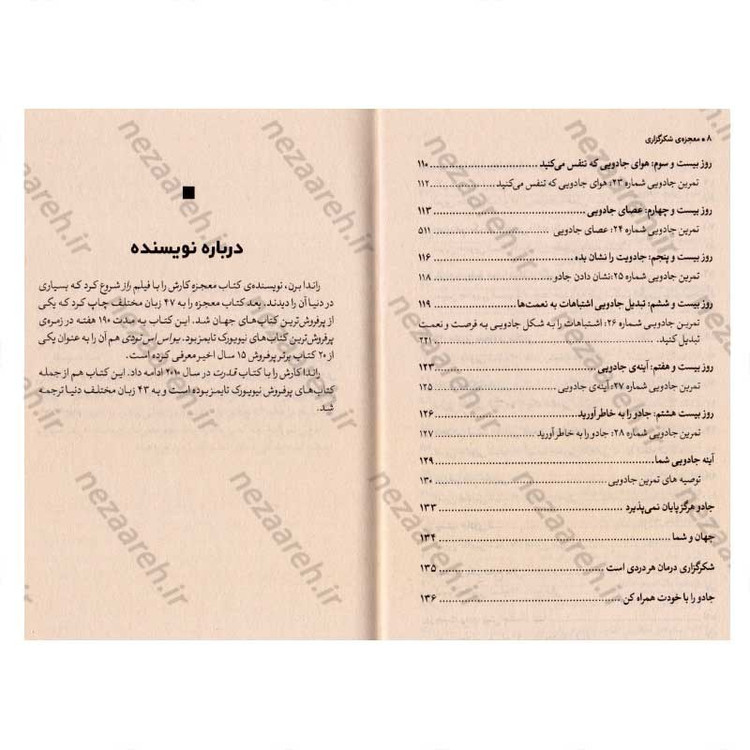 ۸ ● معجزه‌ی شکرگزاری
روز بیست و سوم: هوای جادویی که تنفس می‌کنید ........ ۱۱۰
تمرین جادویی شماره ۲۳: هوای جادویی که تنفس می‌کنید ........ ۱۱۲
روز بیست و چهارم: عصای جادویی ........ ۱۱۳
تمرین جادویی شماره ۲۴: عصای جادویی ........ ۵۱۱
روز بیست و پنجم: جادویت را نشان بده ........ ۱۱۶
تمرین جادویی شماره ۲۵: نشان دادن جادو ........ ۱۱۸
روز بیست و ششم: تبدیل جادویی اشتباهات به نعمت‌ها ........ ۱۱۹
تمرین جادویی شماره ۲۶: اشتباهات را به شکل جادویی به فرصت و نعمت
تبدیل کنید. ........ ۲۲۱
روز بیست و هفتم: آینه‌ی جادویی ........ ۱۲۳
تمرین جادویی شماره ۲۷: آینه‌ی جادویی ........ ۱۲۵
روز بیست هشتم: جادو را به خاطر آورید ........ ۱۲۶
تمرین جادویی شماره ۲۸: جادو را به خاطر آورید ........ ۱۲۷
آینه جادویی شما ........ ۱۲۹
توصیه های تمرین جادویی ........ ۱۳۰
جادو هرگز پایان نمی‌پذیرد ........ ۱۳۳
جهان و شما ........ ۱۳۴
شکرگزاری درمان هر دردی است ........ ۱۳۵
جادو را با خودت همراه کن ........ ۱۳۶
درباره نویسنده
راندا برن، نویسنده‌ی کتاب معجزه کارش را با فیلم راز شروع کرد که بسیاری
در دنیا آن را دیدند، بعد کتاب معجزه را به ۴۷ زبان مختلف چاپ کرد که یکی
از پرفروش‌ترین کتاب‌های جهان شد. این کتاب به مدت ۱۹۰ هفته در زمره‌ی
پرفروش‌ترین کتاب نیویورک تایمز بود. یو اس اس تودی هم آن را به عنوان یکی
از ۲۰ کتاب برتر پرفروش ۱۵ سال اخیر معرفی کرده است.
راندا کارش را با کتاب قدرت در سال ۲۰۱۰ ادامه داد. این کتاب هم از جمله
کتاب‌های پرفروش نیویورک تایمز بوده است و به ۴۳ زبان مختلف دنیا ترجمه
شد.
nezaareh.ir
nezaareh.ir
nezaareh.ir
nezaareh.ir
nezaareh.ir
nezaareh.ir